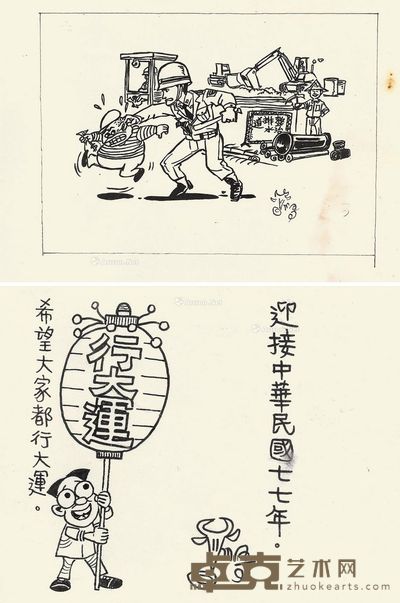 迎接中華民國七七年。
行大運
希望大家都行大運。
卓克艺术网
zhuokearts.com